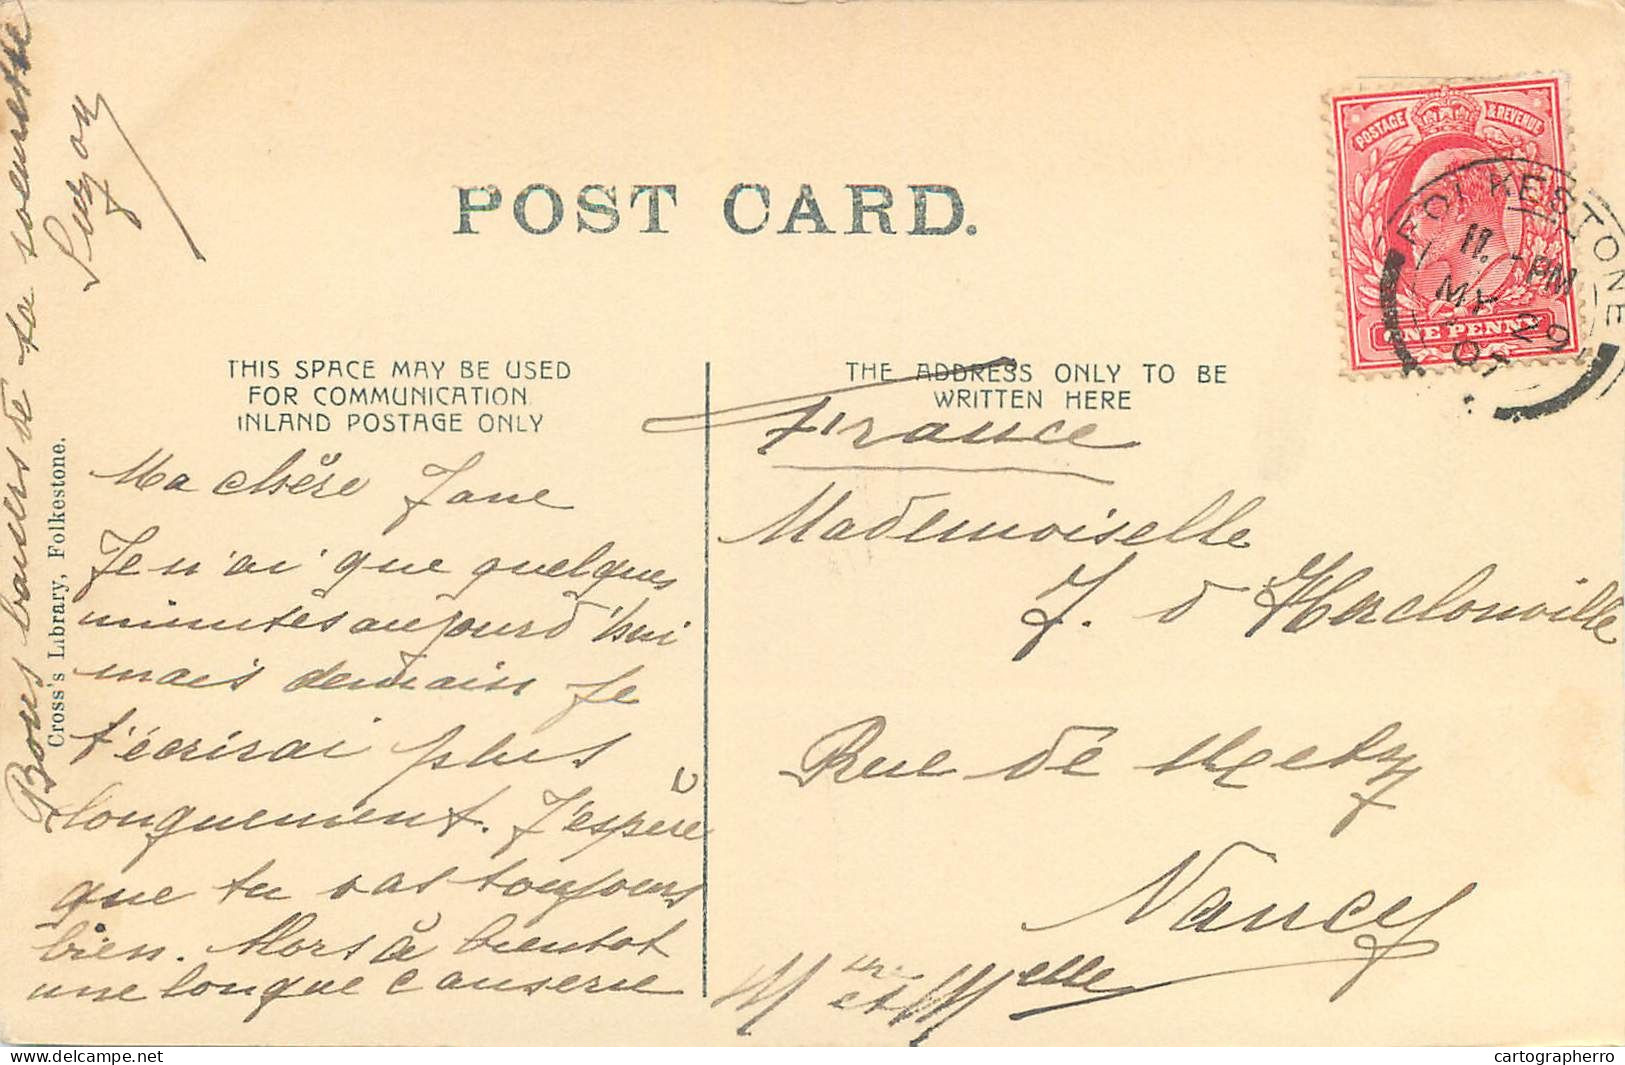 POST CARD.
POSTAGE & REVENUE
ONE PENNY
FOLKESTONE
11. - PM
MY 29
07
THIS SPACE MAY BE USED
FOR COMMUNICATION
INLAND POSTAGE ONLY
THE ADDRESS ONLY TO BE
WRITTEN HERE
Cross's Library, Folkestone.
Ma chère Jane
Je n'ai que quelques
minutes aujourd'hui
mais demain je
t'écrirai plus
longuement. J'espère
que tu vas toujours
bien. Alors à bientot
une longue causerie
Bons baisers de ta soeurette
Suzon
France
Mademoiselle
J. d
Rue de Metz
Nancy
et Melle
cartographerro